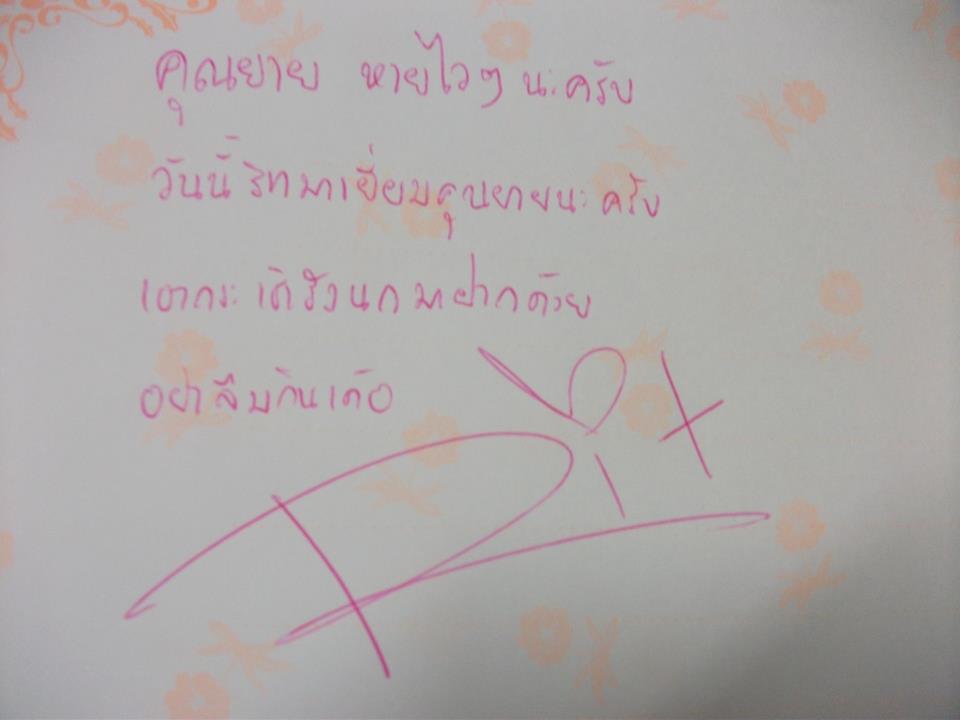 คุณยาย หายไวๆ นะครับ
วันนี้ ริทมาเยี่ยมคุณยายนะครับ
เอากระเช้ารังนกมาฝากด้วย
อย่าลืมกินเด้อ
Rit